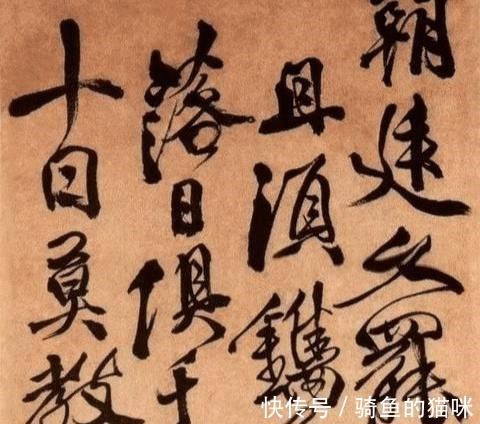 朝廷久罷
且須
落日俱千
十日莫教
快传号 / 骑鱼的猫咪